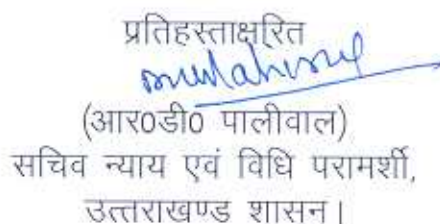 प्रतिहस्ताक्षरित
(आर0डी0 पालीवाल)
सचिव न्याय एवं विधि परामर्शी,
उत्तराखण्ड शासन।